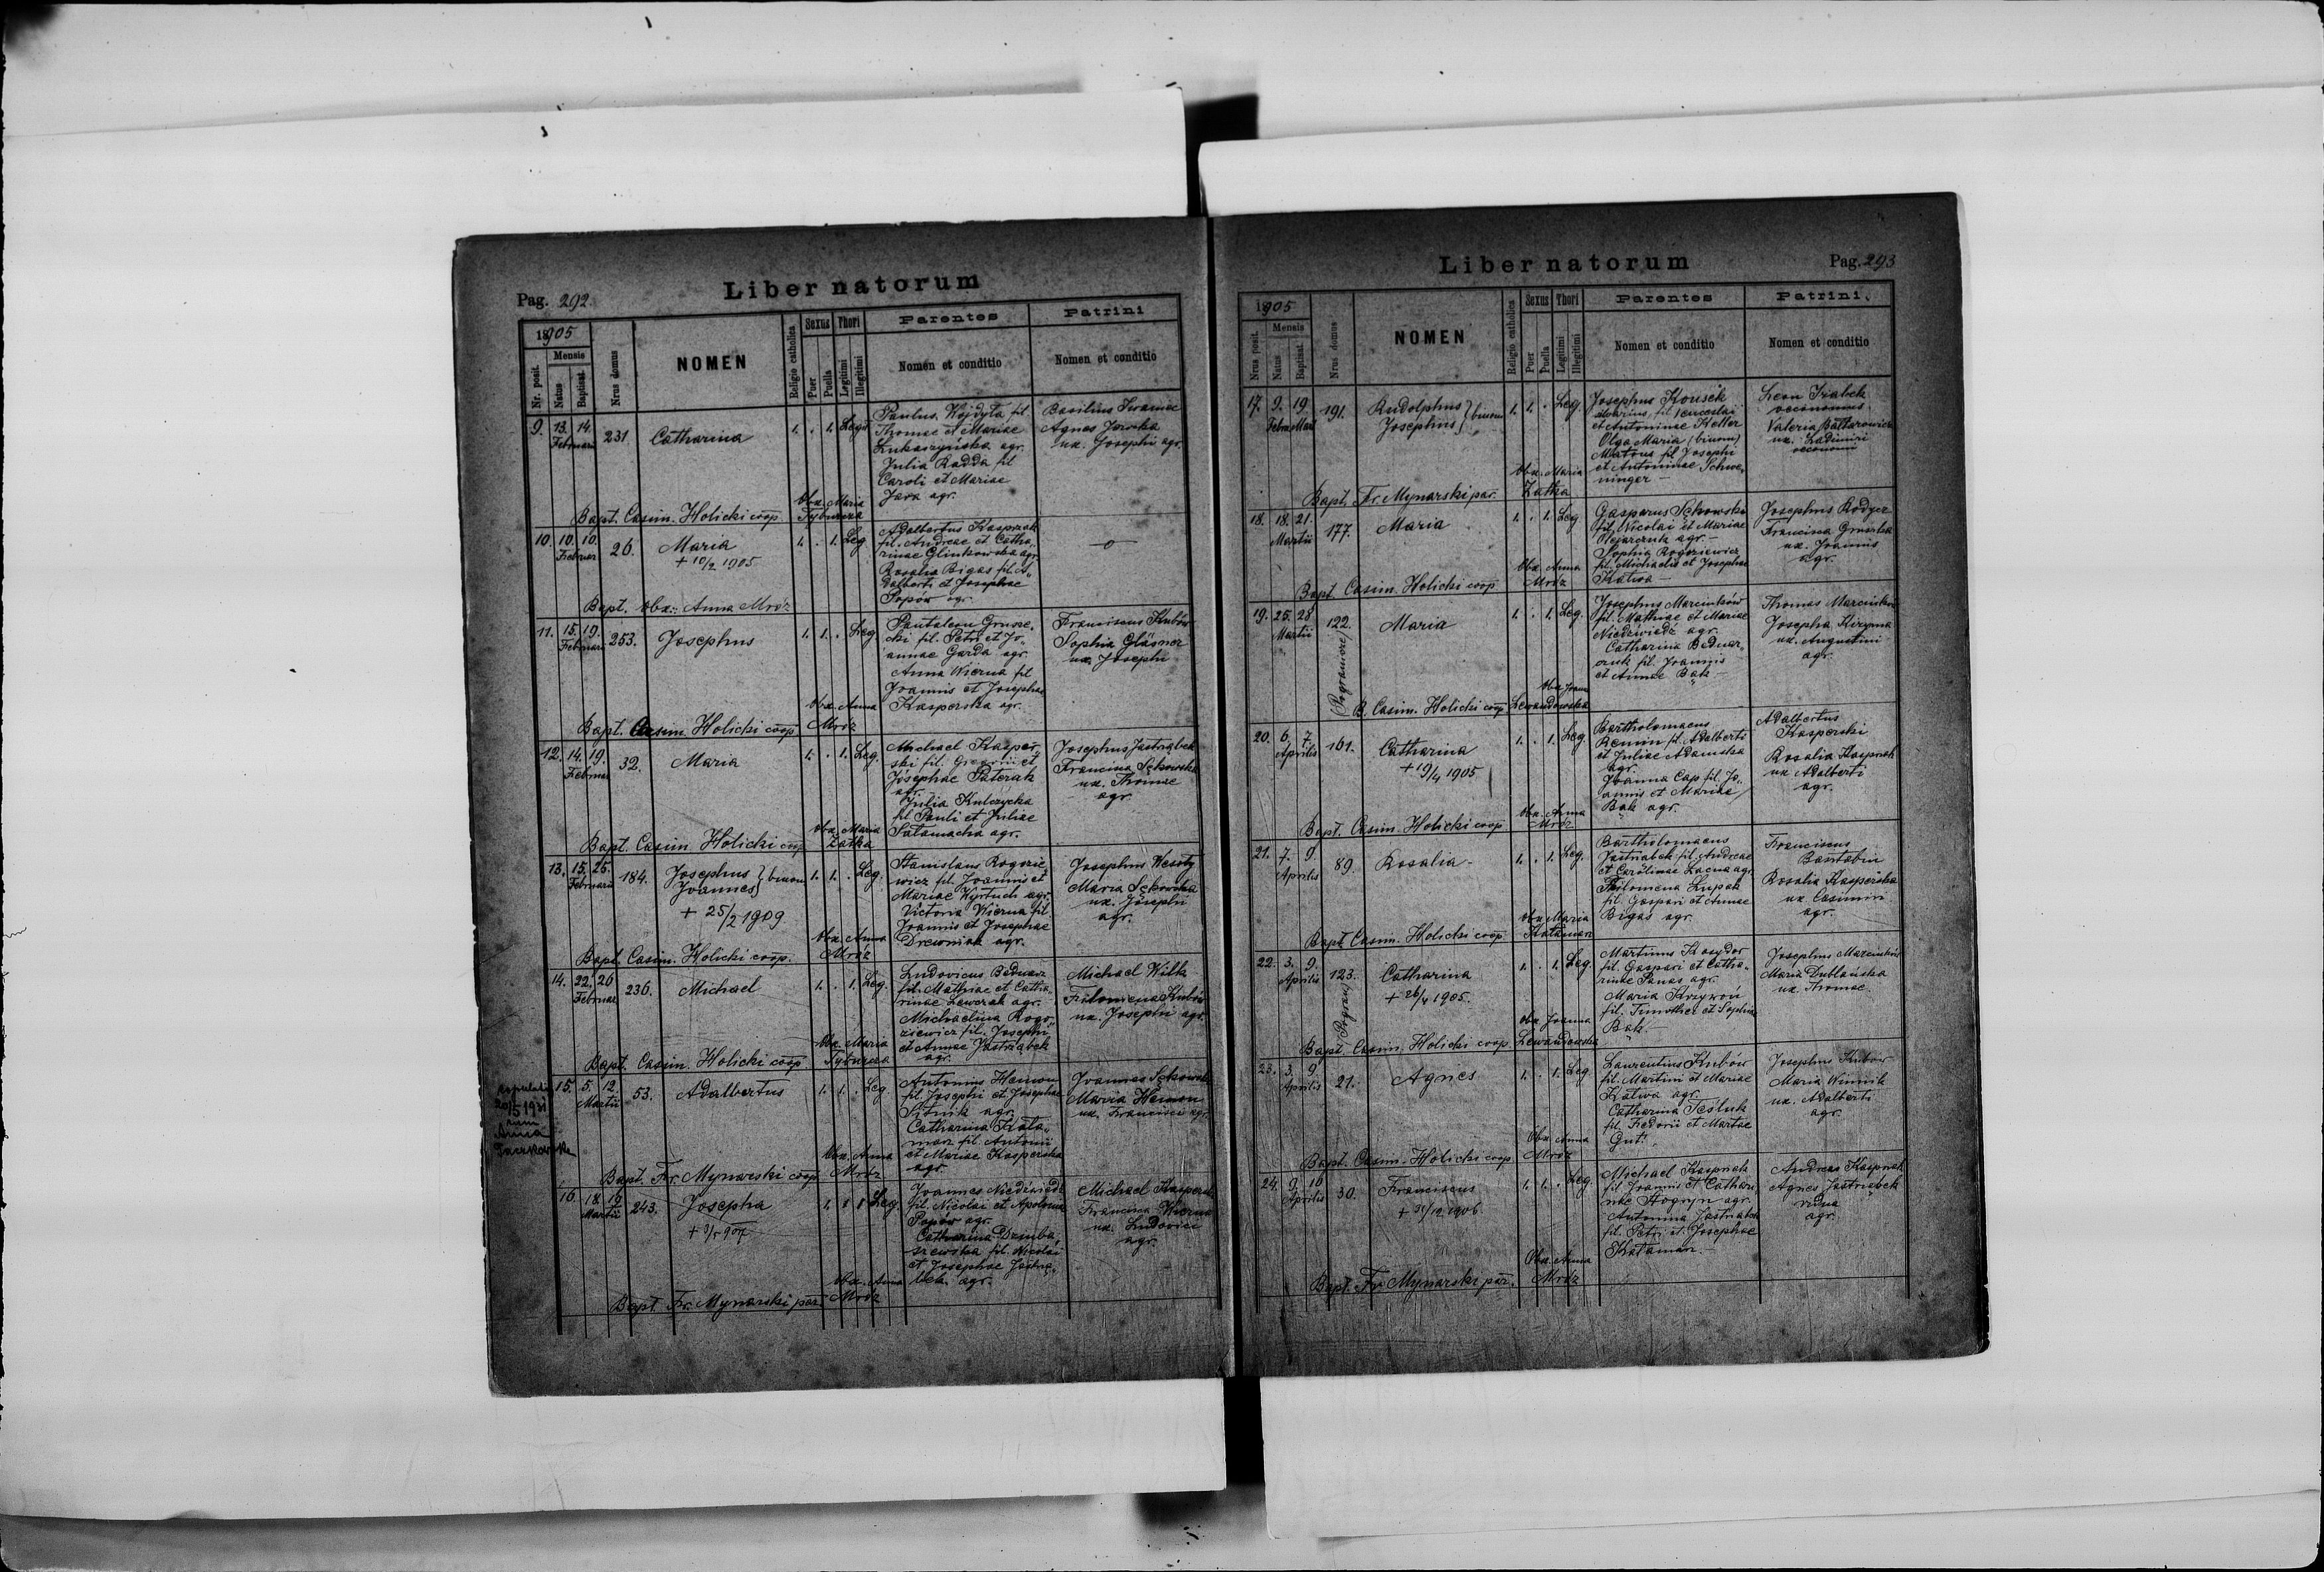 Pag. 292.
Liber natorum
1905
Nr. posit.
Mensis
Natus
Baptisat.
Nrus domus
NOMEN
Religio catholica
Sexus
Puer
Puella
Thori
Legitimi
Illegitimi
Parentes
Nomen et conditio
Patrini
Nomen et conditio
9. 13. 14. Februarii 231. Catharina 1. . 1. Leg.
Paulus Wojdyła fil.
Thomae et Mariae
Lukaszyńska agr.
Julia Radda fil
Caroli et Mariae
Jara agr.
Basilius Iwaniec
Agnes Jawska
ux. Josephi agr.
Obx. Maria
Bapt. Casim. Holicki coop. Tyburcza
10. 10. 10. Februar 26. Maria 1. . 1. Leg
+ 10/2 1905
Adalbertus Kasprzak
fil. Andreae et Catha,
rinae Glinkowska agr.
Rosalia Bigas fil. A,
dalberti et Josephae
Popów agr.
Bapt. Obx.: Anna Mróz
11. 15. 19. Februarii 253. Josephus 1. 1. . Leg
Pantaleon Grusze,
cki fil. Petri et Jo,
annae Garda agr.
Anna Wierna fil
Joannis et Josephae
Kasperska agr.
Franciscus Kubów
Sophia Gläsner
ux. Josephi
Obx. Anna
Bapt. Casim. Holicki coop. Mróz
12. 14. 19. Februar 32. Maria 1. . 1. Leg.
Michael Kasper,
ski fil. Gregorii et
Josephae Paterak
agr.
Julia Kulczycka
fil Pauli et Juliae
Satamacha agr.
Josephus Jastrząbek
Francisca Sękowska
ux. Thomae
agr.
Obx. Maria
Bapt. Casim. Holicki coop Zatka
13. 15. 25. Februarii 184. Josephus } binom 1. 1. . Leg.
Joannes
+ 25/2 1909
Stanislaus Rogozie,
wicz fil. Joannis et
Mariae Wyrtuch agr.
Victoria Wierna fil.
Joannis et Josephae
Drewniak agr.
Josephus Wesoły
Maria Sękowska
ux. Josephi
agr.
Obx. Anna
Bapt. Casim. Holicki coop. Mróz
14. 22. 26 Februar 236. Michael 1. . 1. Leg.
Ludovicus Bednarz
fil. Mathiae et Catha,
rinae Lewerak agr.
Michaelina Rogo,
ziewicz fil. Josephi
et Annae Jastrząbek
agr.
Michael Wilk
Filomena Kubów
ux. Josephi agr.
Obx. Maria
Bapt. Casim. Holicki coop Tyburcza
20/5 1931
cum
Anna
15. 5. 12. Martii 53. Adalbertus 1. 1. . Leg
Antonius Hemon
fil. Josephi et Josephae
Sitnik agr.
Catharina Kata,
marz fil. Antonii
et Mariae Kasperska
agr.
Joannes Sękowski
Maria Hemon
ux. Francisci agr.
Obx. Anna
Bapt. Fr. Mynarski coop. Mróz
16 18. 19 Martii 243. Josepha 1. 1 1 Leg.
Joannes Niedźwiedź
fil. Nicolai et Apolonia
Popów agr.
Catharina Dziuba,
szewska fil. Nicolai
et Josephae Jastrzą,
bek. agr.
Michael Kasperski
Francisca Wierna
ux. Ludovici
agr.
Obx. Anna
Bapt. Fr. Mynarski par. Mróz
Liber natorum
Pag. 293
1905
Nrus posit.
Mensis
Natus
Baptisat.
Nrus domus
NOMEN
Religio catholica
Sexus
Puer
Puella
Thori
Legitimi
Illegitimi
Parentes
Nomen et conditio
Patrini
Nomen et conditio
17. 9. 19 Febru Mart 191. Rudolphus } binom 1. 1. . Leg.
Josephus
Josephus Kousek
fil Venceslai
et Antoninae Keller
Olga Maria (binom)
Matous fil Josephi
et Antoninae Schwe,
ninger —
Leon Ziabek
oeconomus
Valeria Bałtarowicz
ux. Ladimiri
oeconomi
Obx. Maria
Bapt. Fr. Mynarski par. Zatka
18. 18. 21. Martii 177. Maria 1. . 1. Leg
Gasparus Sękowski
fil. Nicolai et Mariae
Olejarczuk agr. —
Sophia Rogoziewicz
fil. Michaelis et Josephae
Katwa —
Josephus Rodycz
Francisca Gruszka
ux. Joannis
agr.
Obx. Anna
Bapt. Casim. Holicki coop Mróz
19. 25. 28 Martii 122. Maria 1. . 1. Leg.
Josephus Marcinków
fil. Mathiae et Mariae
Niedźwiedź agr.
Catharina Bednar,
czuk fil. Joannis
et Annae Bąk —
Thomas Marcinków
Josepha Kizyma
ux. Augustini
agr.
Obx. Joanna
B. Casim. Holicki coop Lewandowska
20. 6. 7. Aprilis 161. Catharina 1. . 1. Leg.
+ 19/4 1905
Bartholomaeus
Remin fil. Adalberti
et Juliae Adamska
agr.
Joanna Cap fil. Jo,
annis et Mariae
Bąk agr.
Adalbertus
Kasperski
Rosalia Kasprzak
ux Adalberti
agr.
Obx. Anna
Bapt. Casim. Holicki coop Mróz
21. 7. 9. Aprilis 89. Rosalia - 1. . 1. Leg.
Bartholomaeus
Jastrząbek fil. Andreae
et Carolinae Lacna agr
Filomena Lupak
fil. Gaspari et Annae
Bigas agr.
Franciscus
Rosalia Kasperska
ux. Casimiri
agr.
Obx Maria
Bapt Casim. Holicki coop Katamarz
22. 3. 9. Aprilis 123. Catharina 1. . 1. Leg
+ 26/4 1905.
Martinus Kasydor
fil. Gaspari et Catha,
rinae Panas agr.
Maria Krzywoń
fil. Timothei et Sophia
Bąk —
Josephus Marcinków
Maria Dublańska
ux. Thomae
Obx Joanna
Bapt. Casim. Holicki coop Lewandowska
23. 3. 9 Aprilis 21. Agnes 1. . 1. Leg
Laurentius Kubów
fil. Martini et Mariae
Katwa agr.
Catharina Teśluk
fil. Fedorii et Marthae
Gut.
Josephus Kubów
Maria Winnik
ux. Adalberti
agr.
Obx. Anna
Bapt. Casim. Holicki coop Mróz
24. 9. 16 Aprilis 30. Franciscus 1. 1. . Leg.
Michael Kasprzak
fil Joannis et Cathari,
nae Hogryn agr.
Antonina Jastrząbek
fil. Petri et Josephae
Katamarz. —
Andreas Kasprzak
Agnes Jastrząbek
vidua
agr.
Obx. Anna
Bapt. Fr. Mynarski par. Mróz